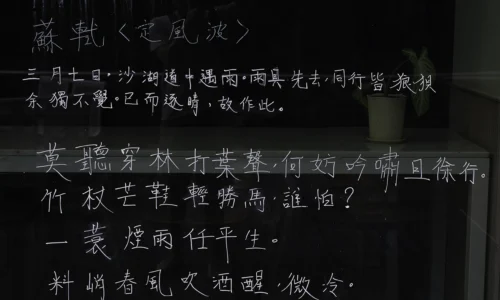 蘇軾〈定風波〉
三月七日。沙湖道中遇雨。雨具先去,同行皆狼狽
余獨不覺。已而逐時,故作此。
莫聽穿林打葉聲,何妨吟嘯且徐行。
竹杖芒鞋輕勝馬,誰怕?
一蓑煙雨任平生。
料峭春風吹酒醒,微冷。